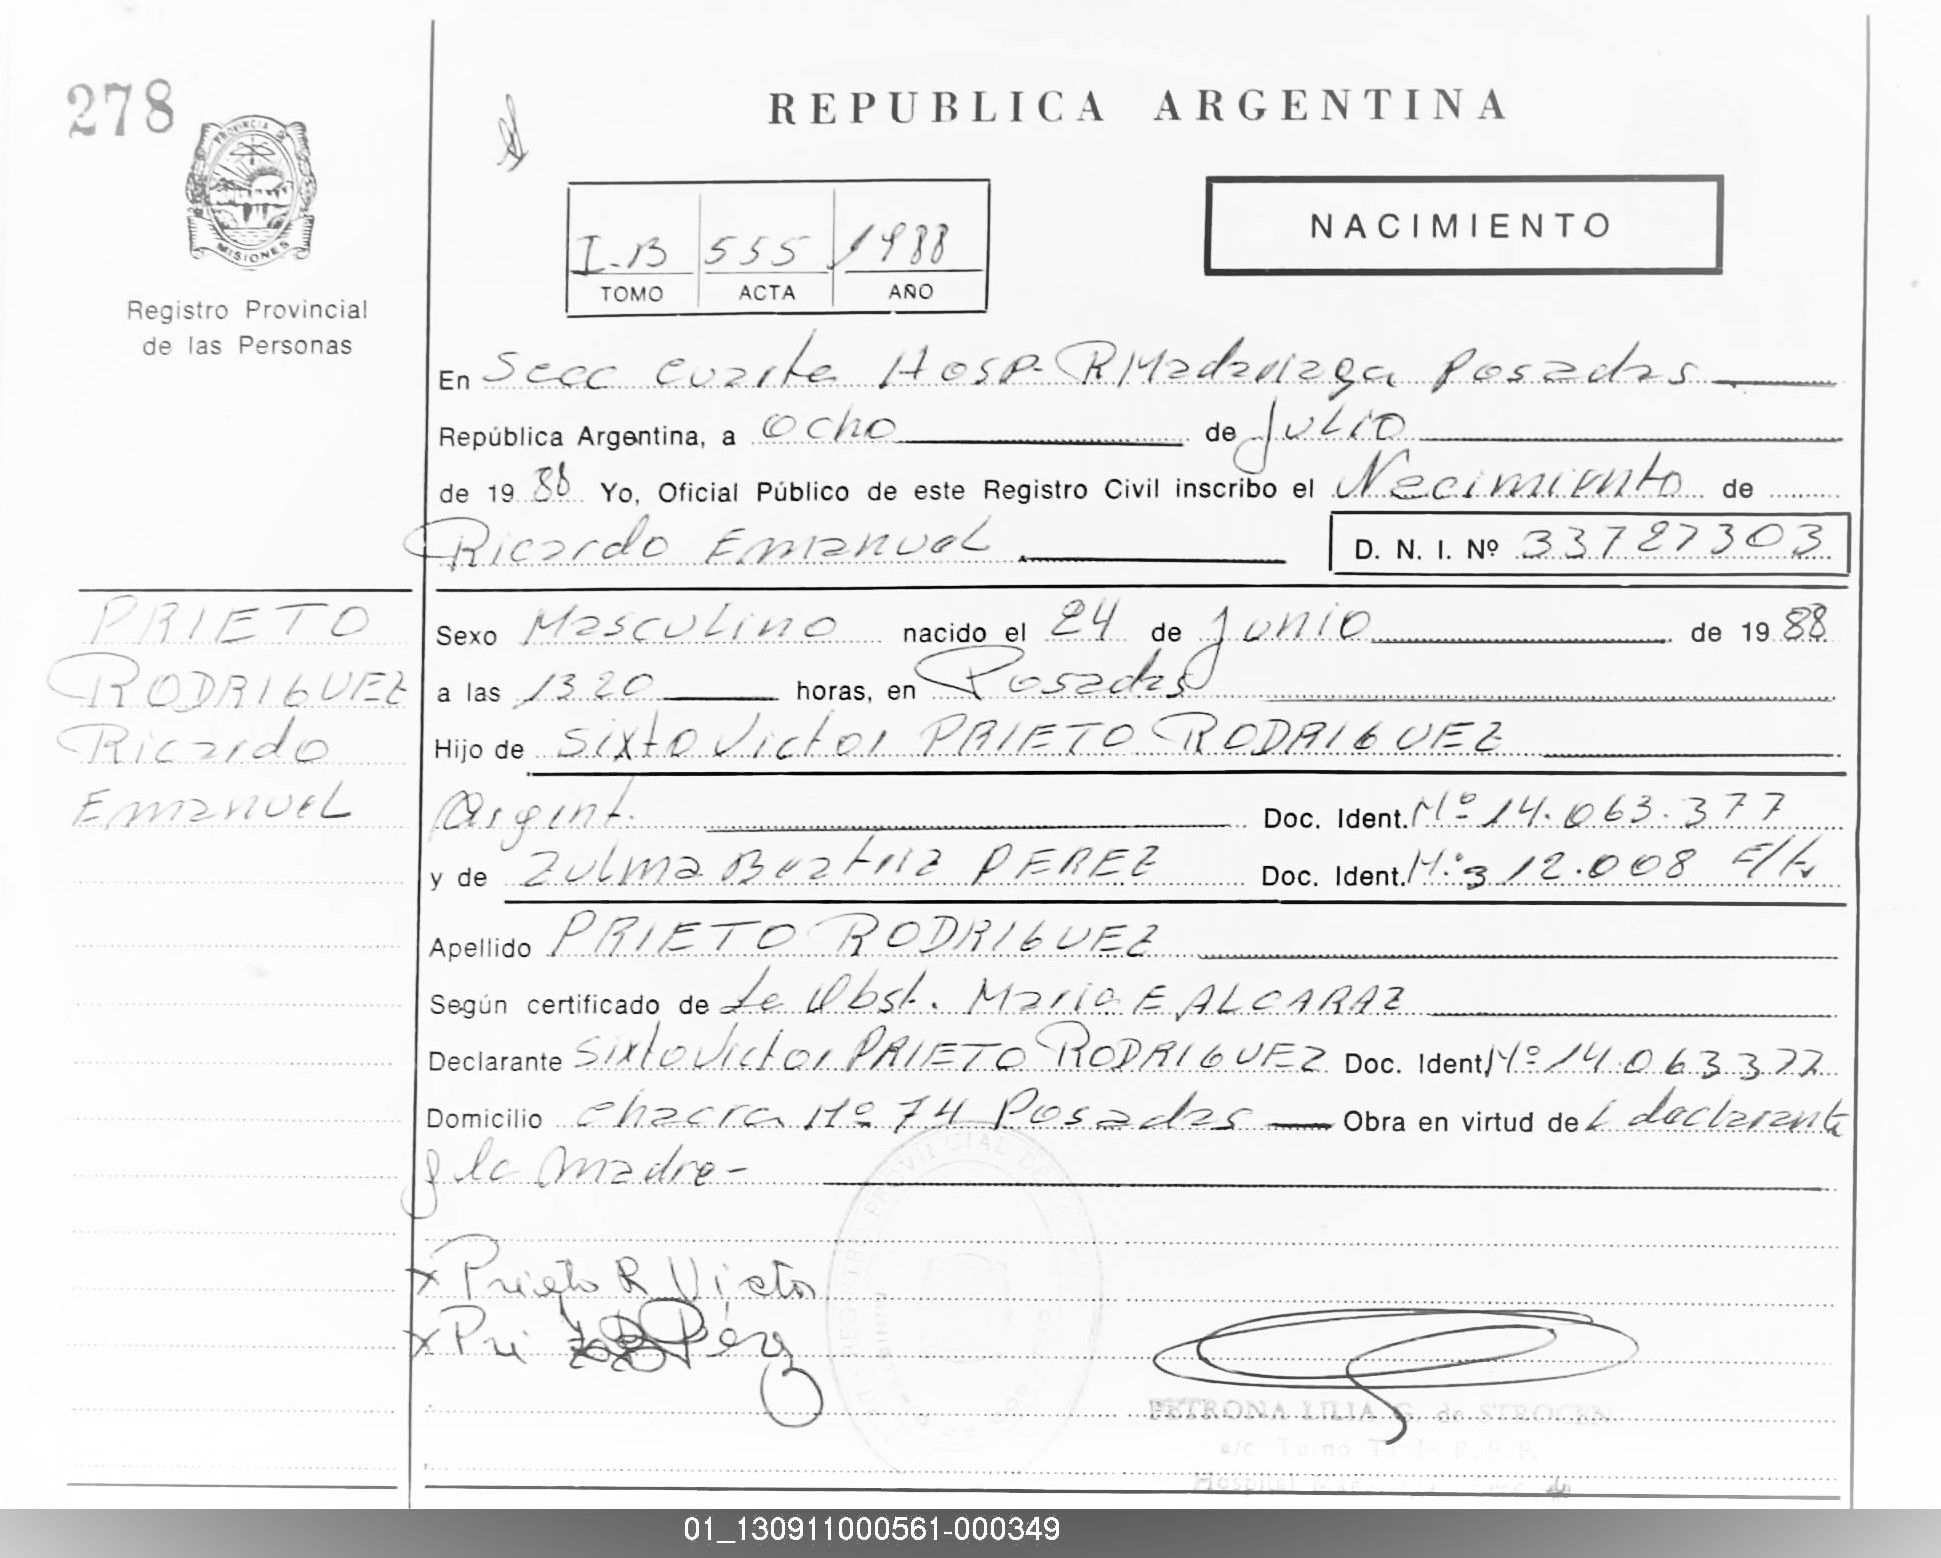 278
REPUBLICA ARGENTINA
PROVINCIA D
MISIONES
Registro Provincial
de las Personas
I-B 555 1988
TOMO ACTA AÑO
NACIMIENTO
En Secc Cuarta Hosp. R Madariaga Posadas
República Argentina, a Ocho de Julio
de 1988 Yo, Oficial Público de este Registro Civil inscribo el Nacimiento de
Ricardo Emanuel D. N. I. Nº 33727303
PRIETO
RODRIGUEZ
Ricardo
Emanuel
Sexo Masculino nacido el 24 de Junio de 1988
a las 13 20 horas, en Posadas
Hijo de Sixto Victor PRIETO RODRIGUEZ
Argent. Doc. Ident. Nº 14.063.377
y de Zulma Beatriz PEREZ Doc. Ident. Nº 312.008
Apellido PRIETO RODRIGUEZ
Según certificado de la Obst. Maria E ALCARAZ
Declarante Sixto Victor PRIETO RODRIGUEZ Doc. Ident Nº 14.063377
Domicilio chacra Nº 74 Posadas Obra en virtud de L declarante
y la madre-
x Prieto R Victor
x Pri Pérez
PETRONA LILIA G. de STROCEN
a/c. Turno Tarde R. P. P.
Hospital
01_130911000561-000349